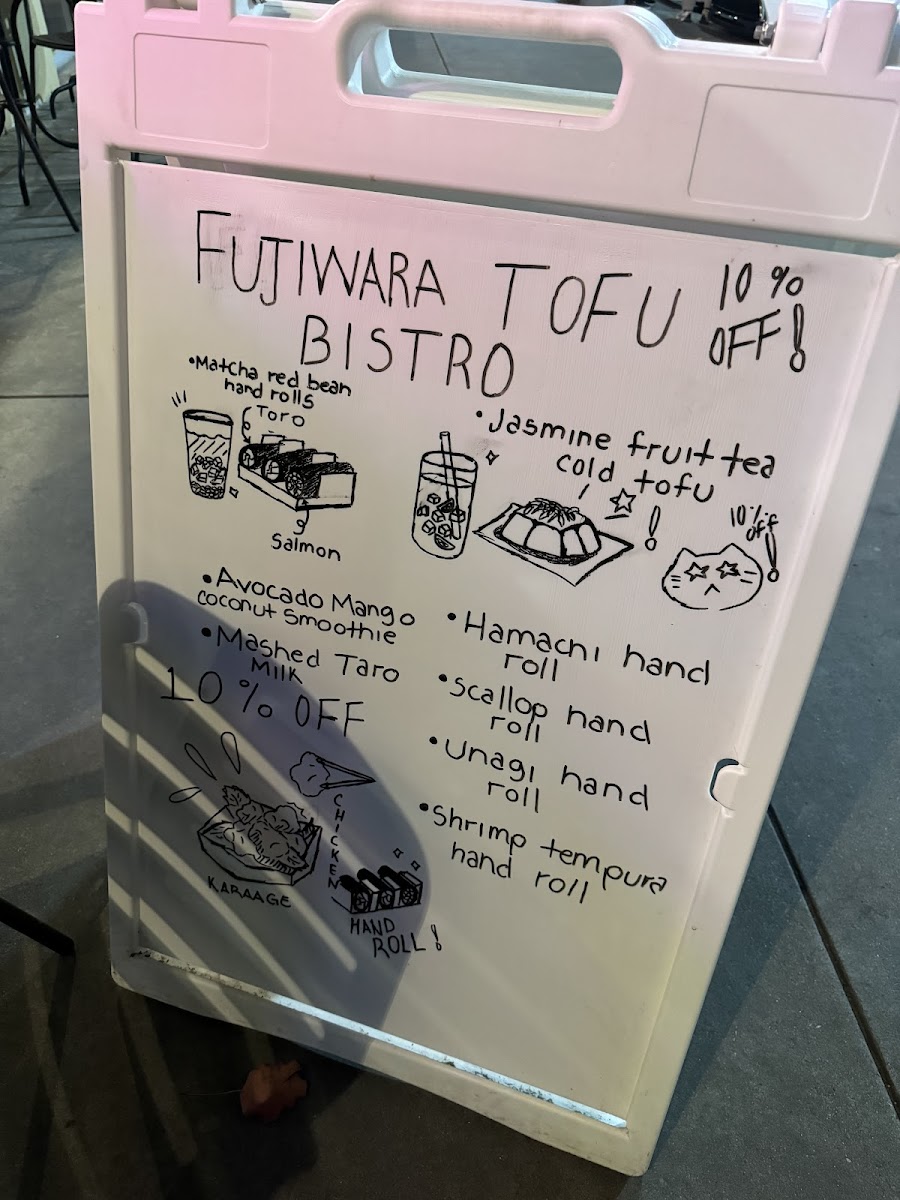 FUJIWARA TOFU
BISTRO
10%
OFF!
•Matcha red bean
hand rolls
Toro
Salmon
•Jasmine fruit tea
cold tofu
!
10% off!
•Avocado Mango
coconut Smoothie
•Mashed Taro
Milk
10% OFF
•Hamachi hand
roll
•Scallop hand
roll
•Unagi hand
roll
•Shrimp tempura
hand roll
KARAAGE
CHICKEN
HAND
ROLL!